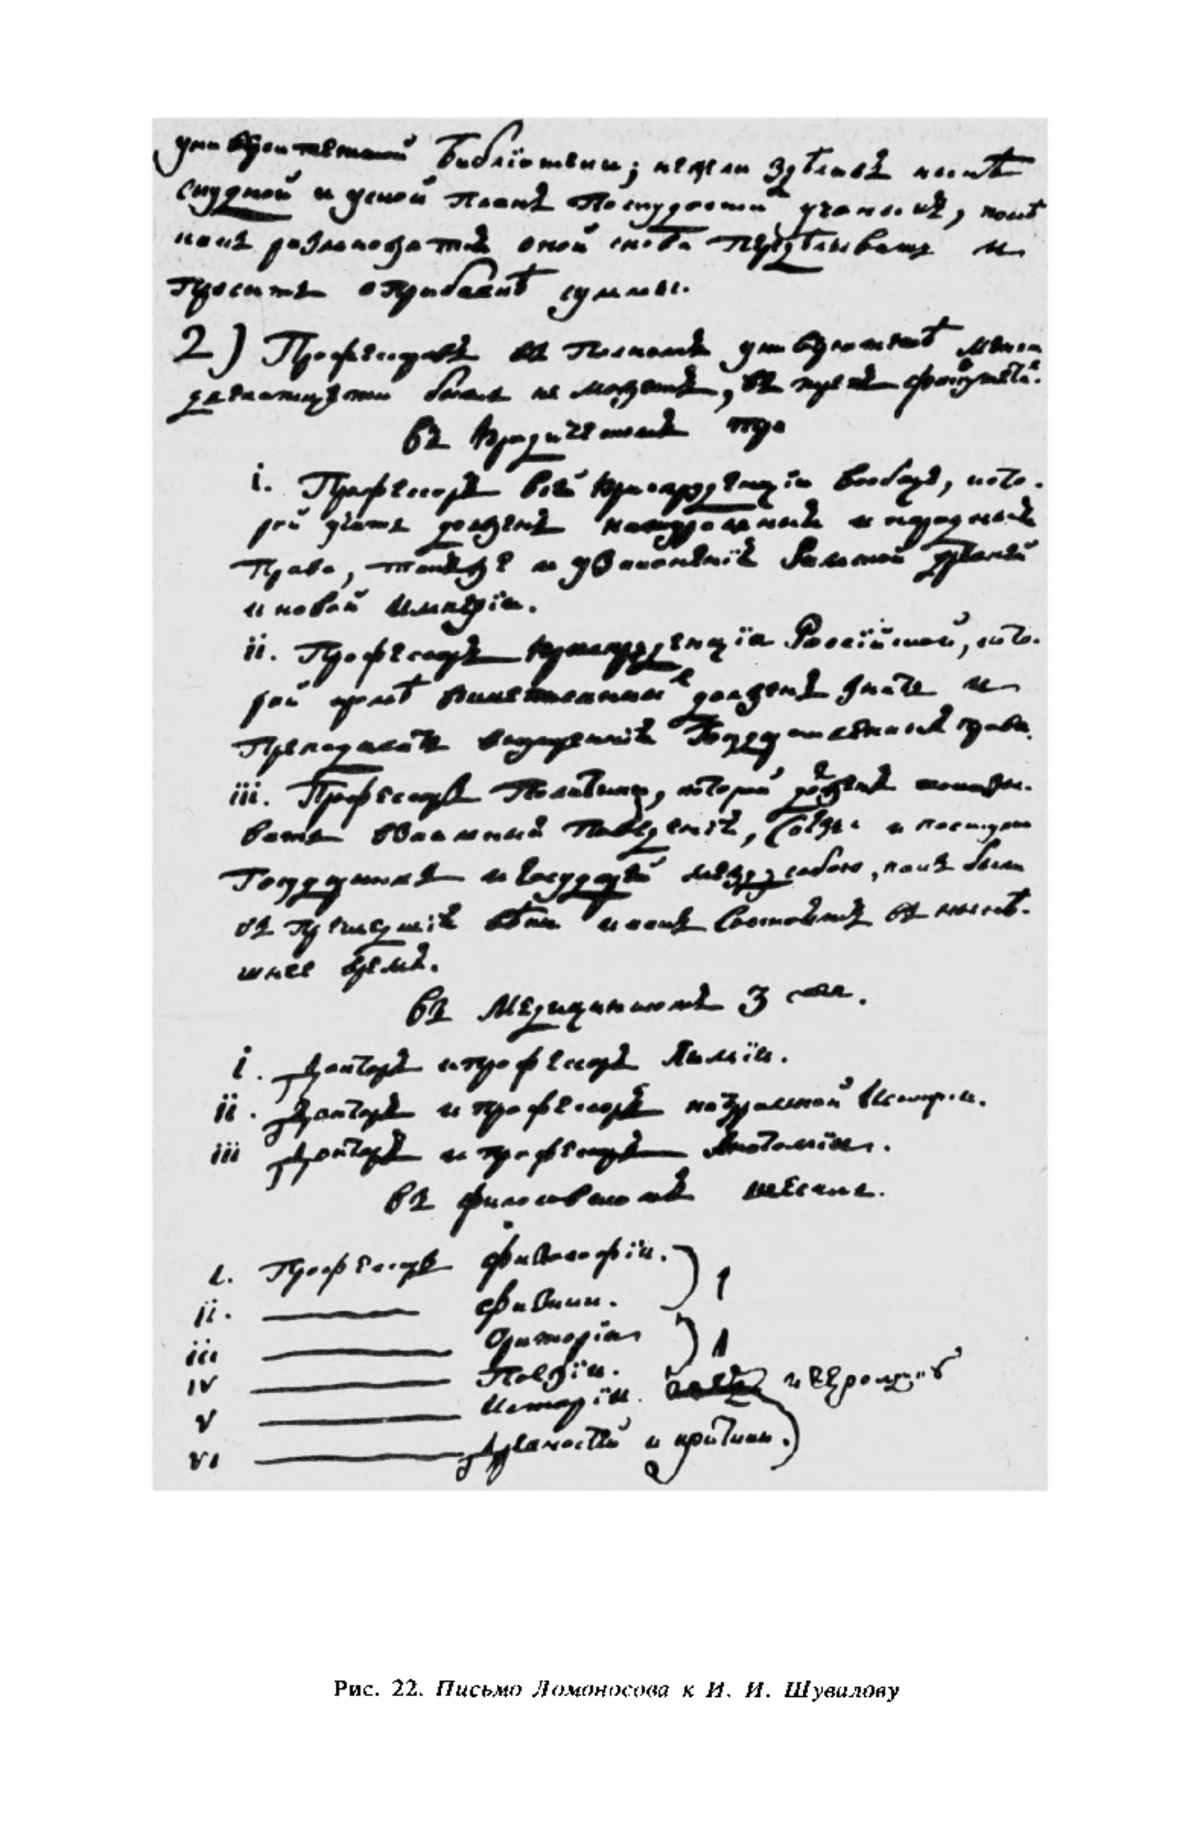 университетской библіотеки; нежели здѣлавъ нынѣ
скудной и узкой планъ по скудости ученыхъ, послѣ
какъ размножатся оной снова передѣлывать и
просить о прибавкѣ суммы.
2) Профессоровъ въ полномъ университетѣ меньше
двенатцати быть не можетъ, въ трехъ факультет.
въ Юридическомъ три
i. Профессоръ всей юриспруденціи вообще, кото-
рой учить долженъ натуральныя и народныя
права, также и узаконенія Римской древней
и новой Имперіи.
ii. Профессоръ юриспруденціи Россійской, кото-
рой кромѣ вышеписанныхъ долженъ знать и
преподавать внутреннія Государственныя права.
iii. Профессоръ Политики, которой долженъ показы-
вать взаимныя поведенія, союзы и поступки
Государствъ и Государей между собою, какъ были
въ прешедшіе вѣки и какъ состоятъ въ нынѣ-
шнее время.
въ Медицинскомъ 3 же.
i. Докторъ и профессоръ Химіи.
ii. Докторъ и профессоръ натуральной Исторіи.
iii Докторъ и профессоръ Анатоміи.
въ философскомъ шесть.
i. Профессоръ философіи. 1
ii. физики.
iii Ораторіи 1
iv Поезіи.
v Исторіи.
vi Древностей и критики.
Рис. 22. Письмо Ломоносова к И. И. Шувалову